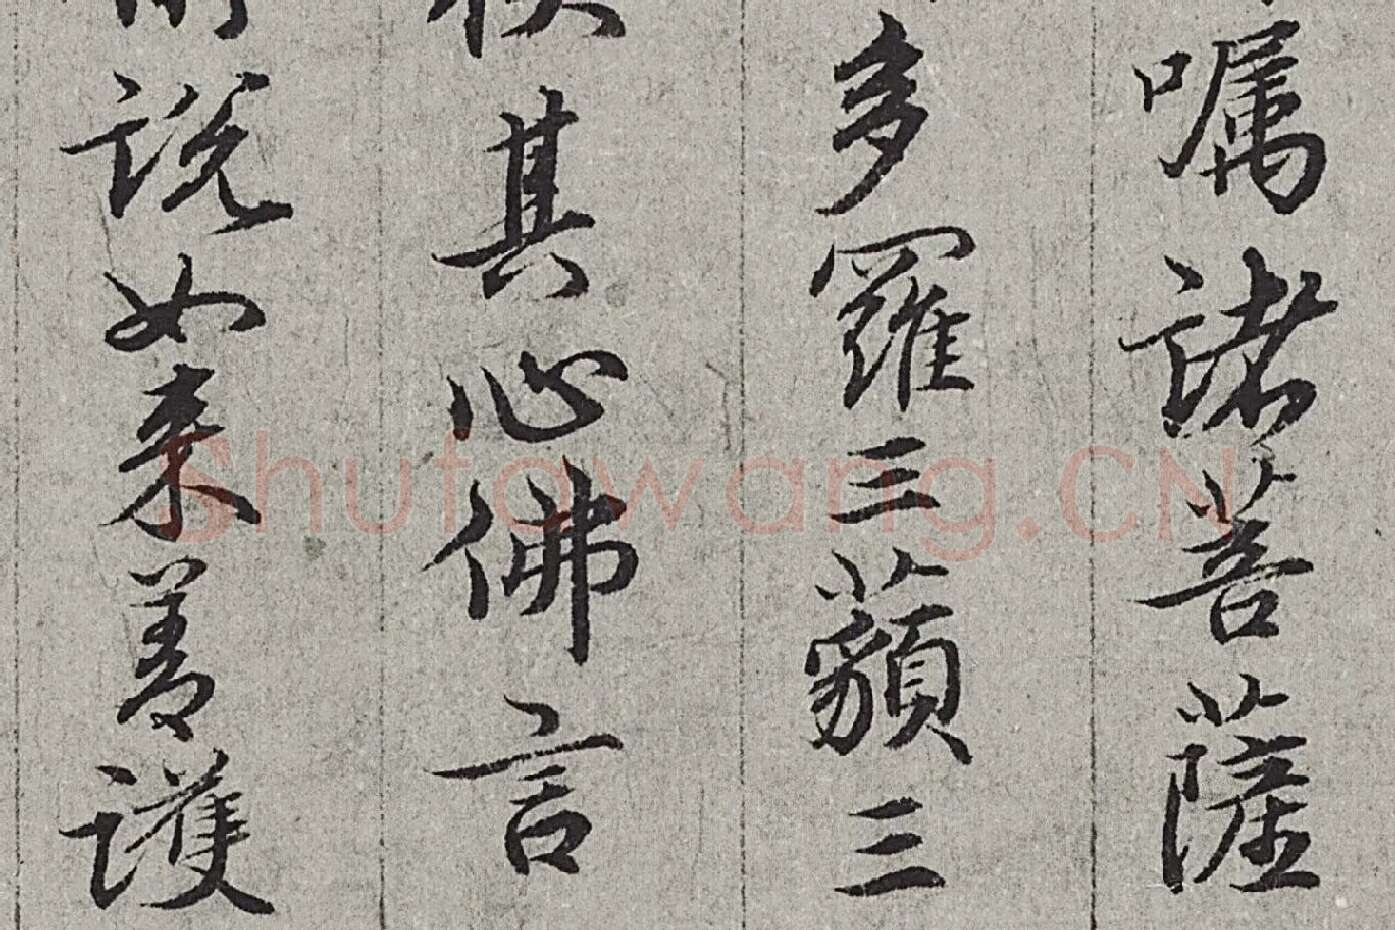 嘱諸菩薩
多羅三藐三
其心佛言
說如来善護
Shufawang.CN